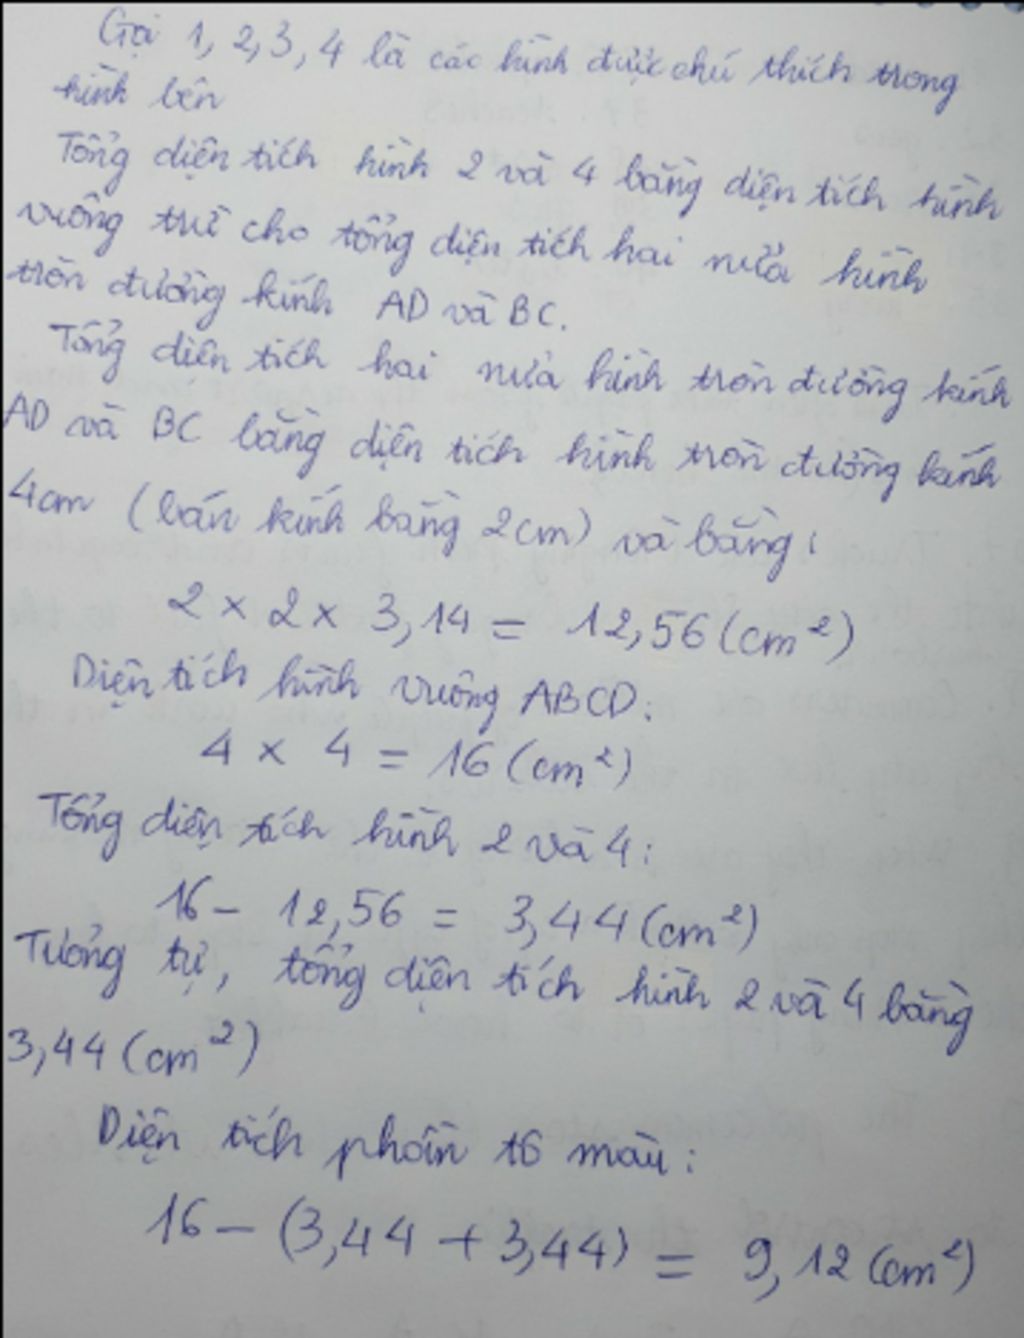 Gọi 1, 2, 3, 4 là các hình được chú thích trong
hình bên
Tổng diện tích hình 2 và 4 bằng diện tích hình
vuông trừ cho tổng diện tích hai nửa hình
tròn đường kính AD và BC.
Tổng diện tích hai nửa hình tròn đường kính
AD và BC bằng diện tích hình tròn đường kính
4cm (bán kính bằng 2cm) và bằng:
2 × 2 × 3,14 = 12,56 (cm²)
Diện tích hình vuông ABCD:
4 × 4 = 16 (cm²)
Tổng diện tích hình 2 và 4:
16 - 12,56 = 3,44 (cm²)
Tương tự, tổng diện tích hình 2 và 4 bằng
3,44 (cm²)
Diện tích phần tô màu:
16 - (3,44 + 3,44) = 9,12 (cm²)